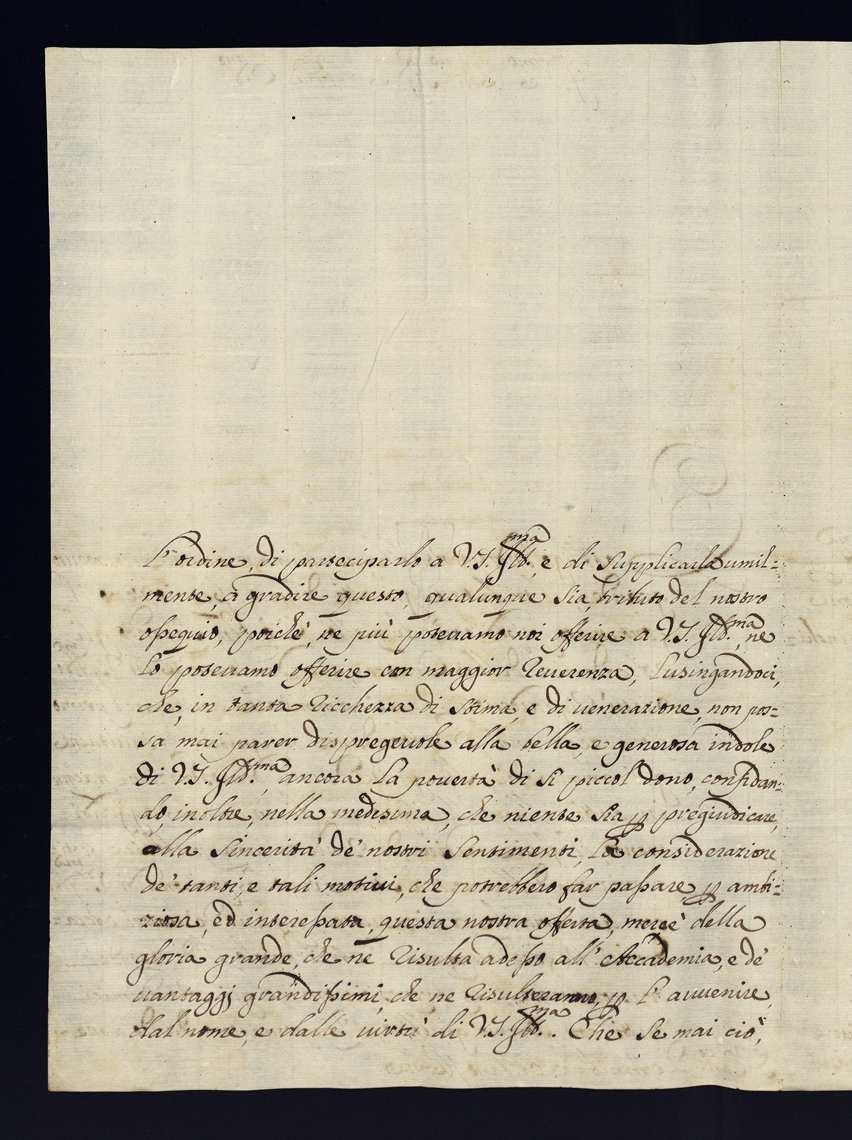 l'ordine, di parteciparlo a V.S. Ill.ma, e di supplicarla umil=
mente, a gradire questo, qualunque sia, tributo del nostro
ossequio, poichè, ne più posevamo noi offerire a V.S. Ill.ma, ne
lo posevamo offerire con maggior reverenza, lusingandoci,
che, in tanta ricchezza di stima, e di venerazione, non pos=
sa mai parer dispregevole alla bella, e generosa indole
di V.S. Ill.ma ancora la povertà di si piccol dono, confidan=
do, inoltre, nella medesima, che niente sia p pregiudicare,
alla sincerità de' nostri sentimenti, la considerazione
de' tanti, e tali motivi, che potrebbero far passare p ambi=
ziosa, ed interessata, questa nostra offerta, mercè della
gloria grande, che ne risulta adesso all' Accademia, e de'
vantaggj grandissimi, che ne risulteranno, p l'avvenire,
dal nome, e dalle virtù di V.S. Ill.ma. Che se mai ciò,